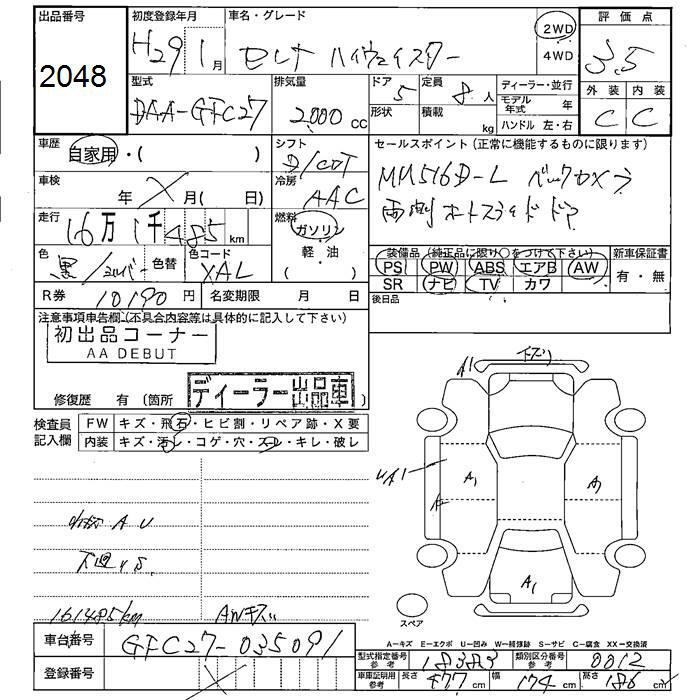 出品番号 初度登録年月 車名・グレード 2WD 4WD 評価点
2048 H29 1月 セレナ ハイウェイスター 3.5
型式 排気量 ドア 定員 ディーラー・並行 外装 内装
DAA-GFC27 2000 cc 5 8人 モデル年式 年 C C
形状 積載 kg ハンドル 左・右
車歴 自家用・( ) シフト D/CVT セールスポイント(正常に機能するものに限ります)
車検 年 月( 日) 冷房 AAC MM516D-L バックカメラ
走行 16万1千485km 燃料 ガソリン 両側オートスライドドア
色 黒/シルバー 色替 色コード XAL 軽・油 ( )
装備品(純正品に限り○をつけて下さい) 新車保証書
PS PW ABS エアB AW 有・無
SR ナビ TV カワ
R券 10190円 名変期限 月 日 後日品
注意事項申告欄(不具合内容等は具体的に記入して下さい)
初出品コーナー
AA DEBUT
修復歴 有(箇所 ディーラー出品車 )
検査員記入欄 FW キズ・飛石・ヒビ割・リペア跡・X要
内装 キズ・汚レ・コゲ・穴・スレ・キレ・破レ
A1
A1
A1
A U
下廻りS
161485km AWキズ
スペア
A-キズ E-エクボ U-凹み W-補修跡 S-サビ C-腐食 XX-交換済
車台番号 GFC27-035091 型式指定番号 参考 18383 類別区分番号 参考 0012
登録番号 車庫証明用 参考 長さ 477cm 幅 174cm 高さ 186cm